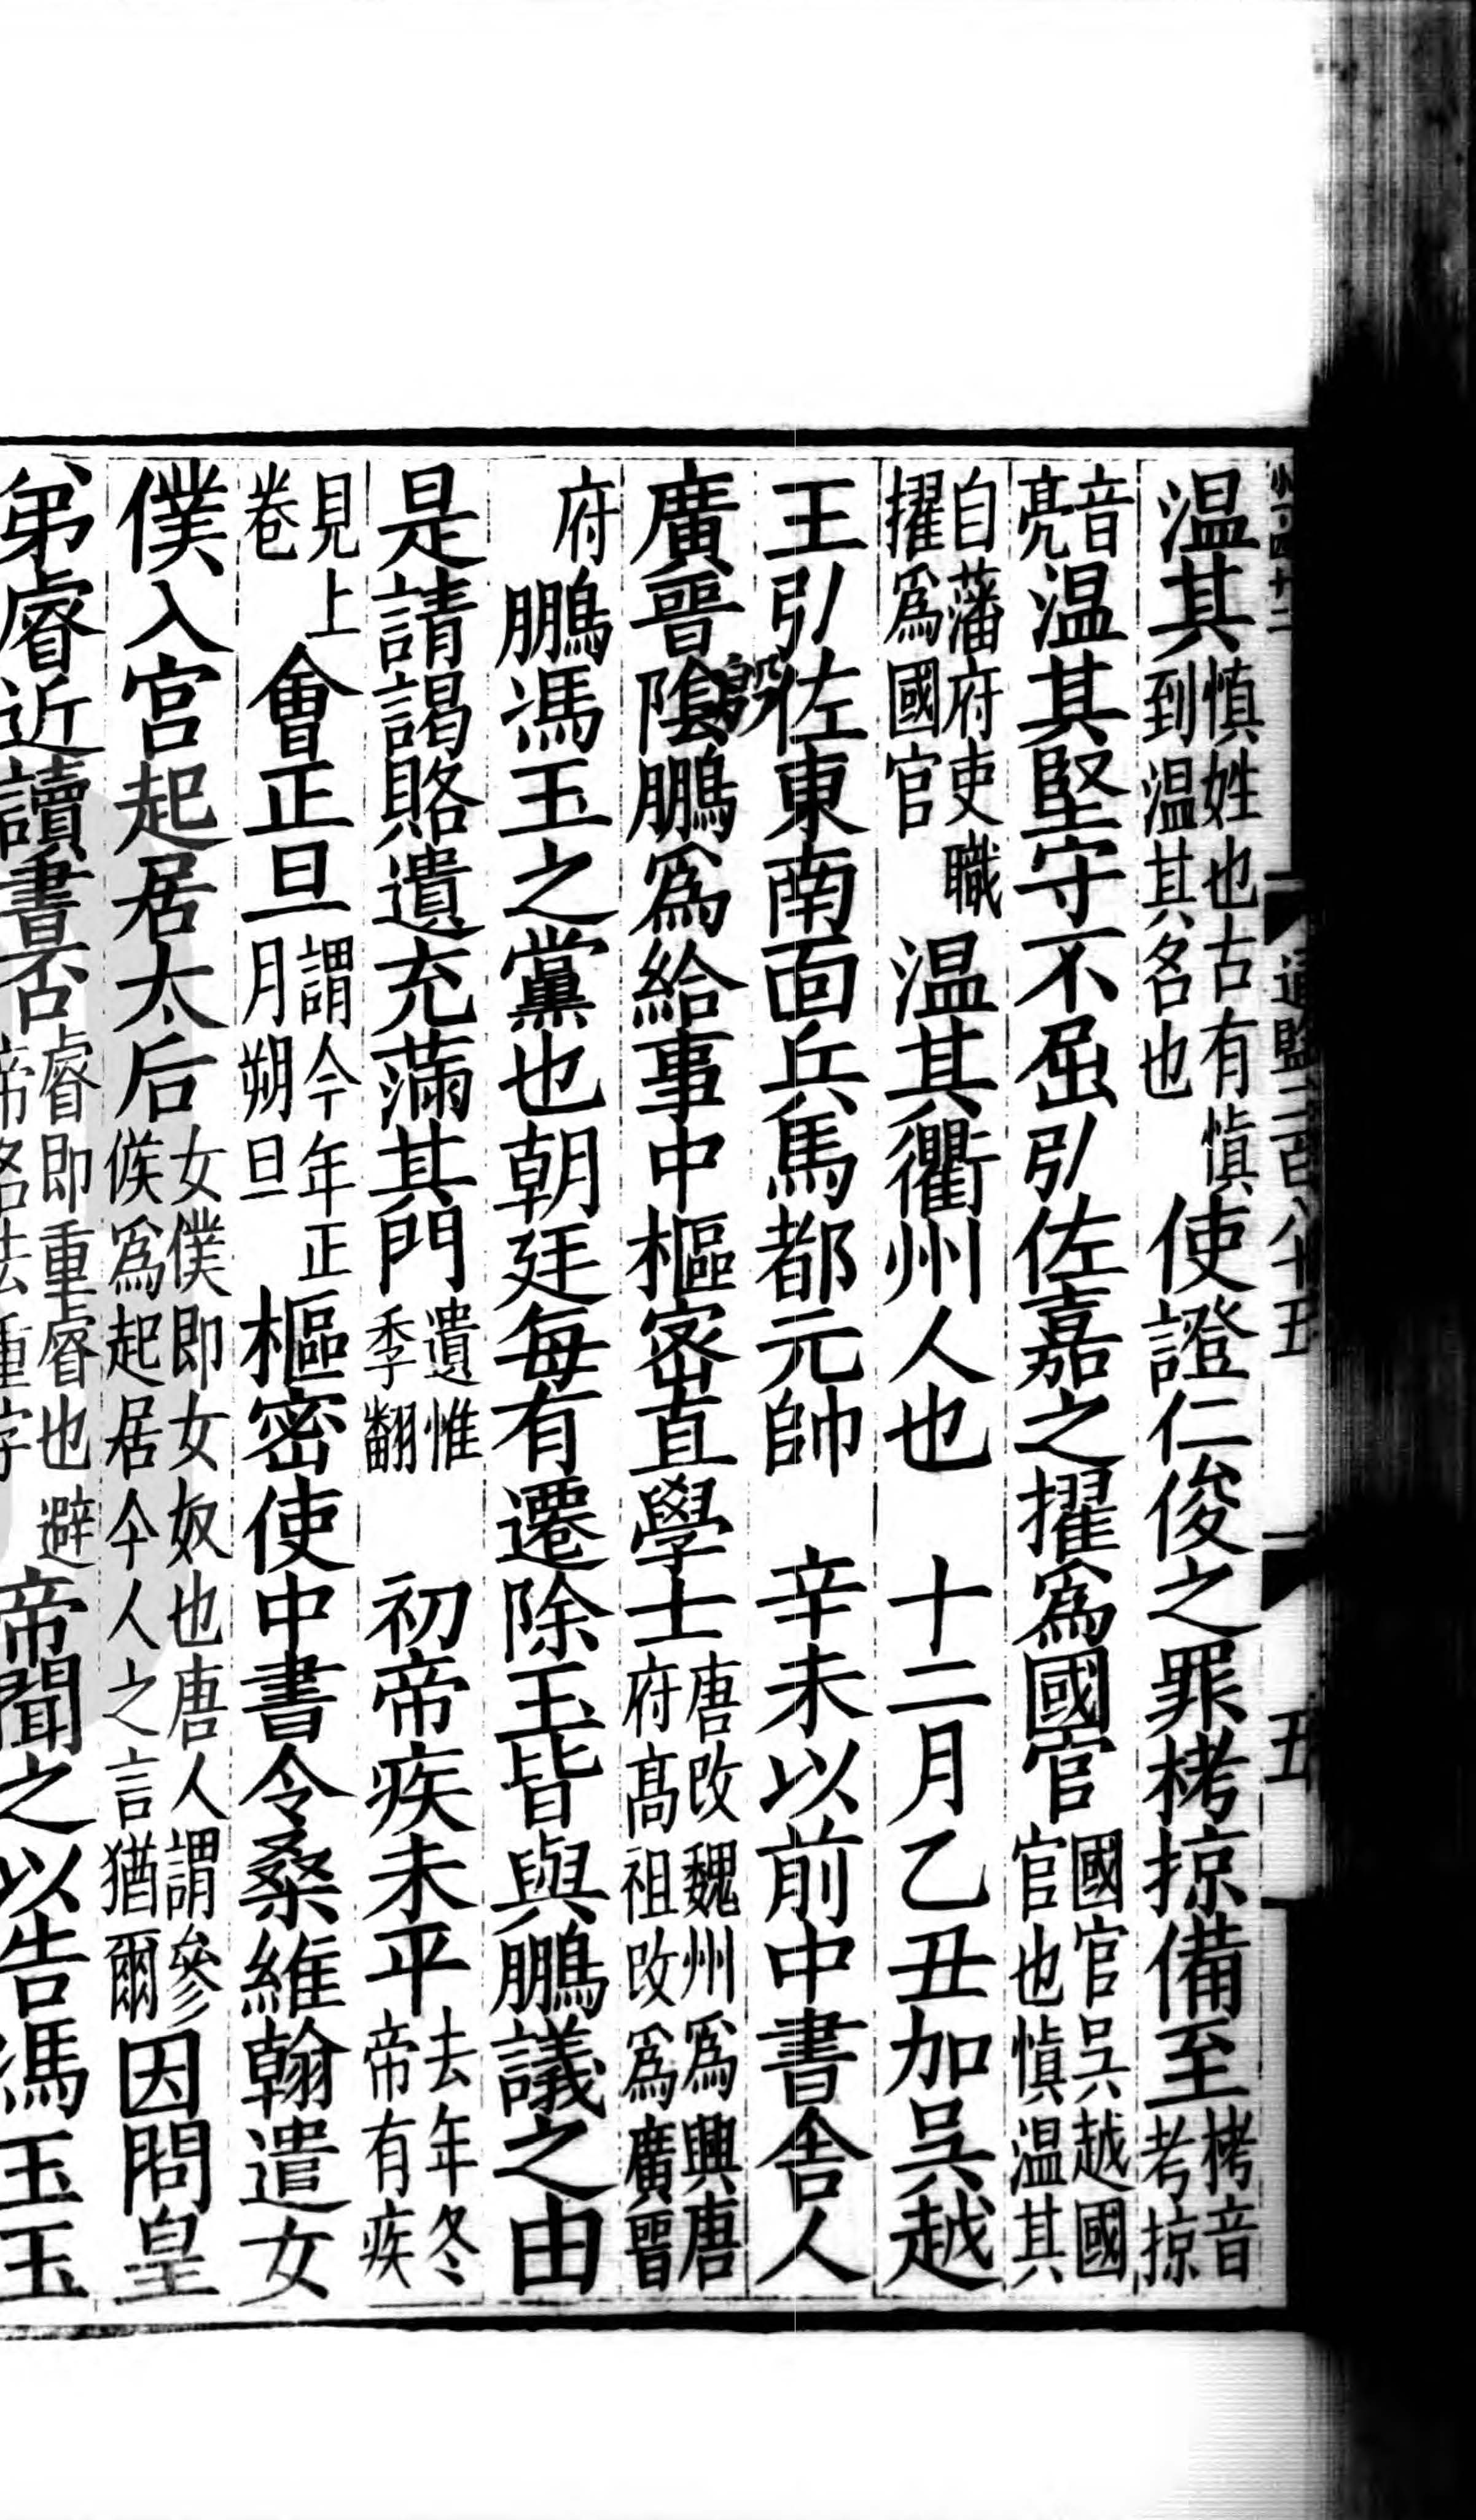 通鑑二百八十五 五
温其慎姓也古有慎到温其名也使證仁俊之罪栲掠備至栲音考掠
音亮温其堅守不屈引佐嘉之擢爲國官國官吳越國官也慎温其
自藩府吏職擢爲國官温其衢州人也 十二月乙丑加吳越
王引佐東南面兵馬都元帥 辛未以前中書舍人
廣晉陰鵬爲給事中樞密直學士唐改魏州爲興唐府高祖改爲廣晉
府鵬馮玉之黨也朝廷每有遷除玉皆與鵬議之由
是請謁賂遺充滿其門遺惟季翻 初帝疾未平去年冬帝有疾
見上卷會正旦謂今年正月朔旦樞密使中書令桑維翰遣女
僕入宮起居太后女僕即女奴也唐人謂參候爲起居今人之言猶爾因問皇
弟睿近讀書否睿即重睿也避帝名去重字帝聞之以告馮玉玉